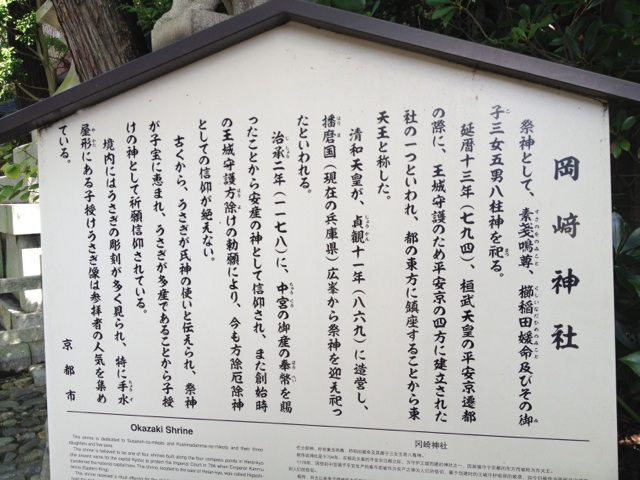 岡﨑神社
祭神として、素戔嗚尊、櫛稲田媛命及びその御
子三女五男八柱神を祀る。
延暦十三年（七九四）、桓武天皇の平安京遷都
の際に、王城守護のため平安京の四方に建立された
社の一つといわれ、都の東方に鎮座することから東
天王と称した。
清和天皇が、貞観十一年（八六九）に造営し、
播磨国（現在の兵庫県）広峯から祭神を迎え祀っ
たといわれる。
治承二年（一一七八）に、中宮の御産の奉幣を賜
ったことから安産の神として信仰され、また創始時
の王城守護方除けの勅願により、今も方除厄除神
としての信仰が絶えない。
古くから、うさぎが氏神の使いと伝えられ、祭神
が子宝に恵まれ、うさぎが多産であることから子授
けの神として祈願信仰されている。
境内にはうさぎの彫刻が多く見られ、特に手水
屋形にある子授けうさぎ像は参拝者の人気を集め
ている。
京都市
Okazaki Shrine
This shrine is dedicated to Susanoh-no-mikoto and Kushinadahime-no-mikoto and their three
daughters and five sons.
This shrine is believed to be one of four shrines built along the four compass points in Heian-kyo
(the ancient name for the capital Kyoto) to protect the Imperial Court in 794 when Emperor Kanmu
transferred the national capital here. This shrine, located to the east of Heian-kyo, was called Higashi-
tenno (Eastern King).
冈崎神社